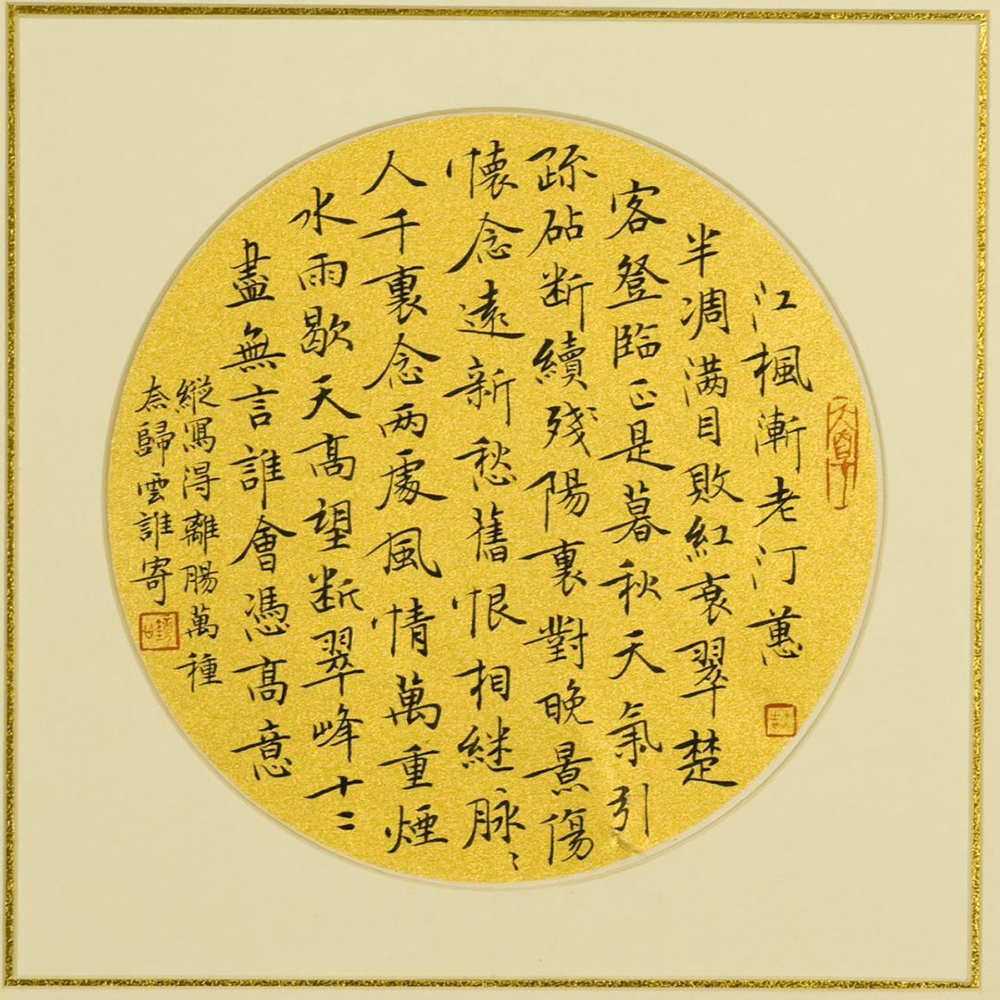 江楓漸老汀蕙
半凋满目敗紅衰翠楚
客登臨正是暮秋天氣引
疏砧断續殘陽裏對晚景傷
懷念遠新愁舊恨相繼脉〻
人千裏念两處風情萬重煙
水雨歇天高望断翠峰十二
盡無言誰會憑高意
縱寫得離腸萬種
奈歸雲誰寄